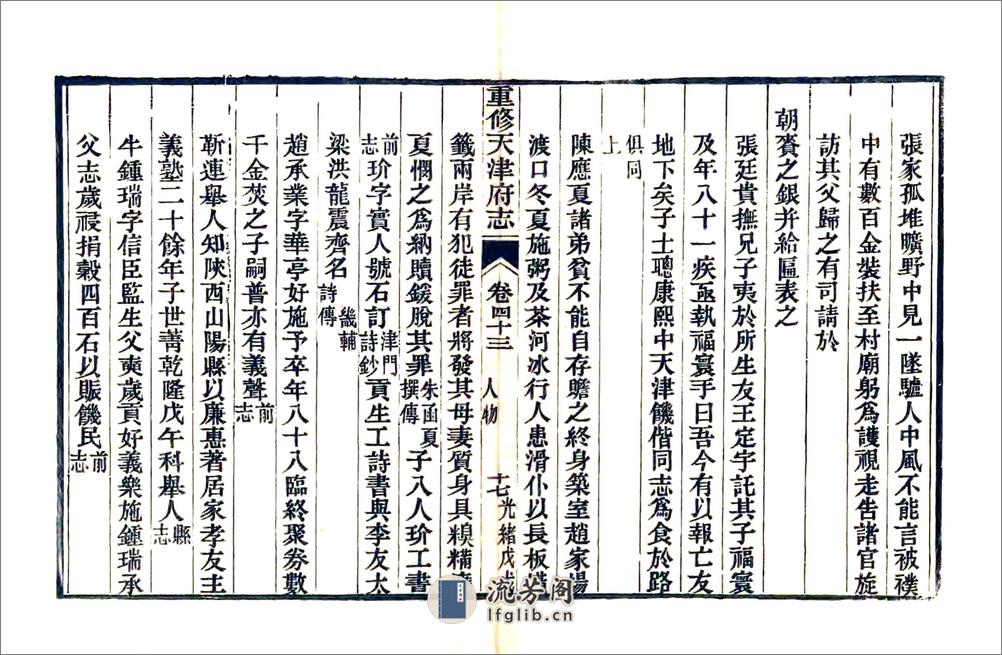 張家孤堆曠野中見一墜驢人中風不能言被襆
中有數百金裝扶至村廟躬爲護視走告諸官旋
訪其父歸之有司請於
朝賚之銀并給匾表之
張廷貴撫兄子夷於所生友王定宇託其子福寰
及年八十一疾亟執福寰手曰吾今有以報亡友
地下矣子士聰康熙中天津饑偕同志爲食於路
俱同上
陳應夏諸弟貧不能自存贍之終身築室趙家場
渡口冬夏施粥及茶河冰行人患滑仆以長板
重修天津府志 卷四十三 人物 十七 光緒戊戌
籤兩岸有犯徒罪者將發其母妻質身具糗糒
夏憫之爲納贖鍰脫其罪朱函夏撰傳子八人玠工書
前志玠字實人號石訂津門詩鈔貢生工詩書與李友太
梁洪龍震齊名畿輔詩傳
趙承業字華亭好施予卒年八十八臨終聚券數
千金焚之子嗣普亦有義聲前志
靳連舉人知陝西山陽縣以廉惠著居家孝友主
義塾二十餘年子世菁乾隆戊午科舉人縣志
牛鍾瑞字信臣監生父奭歲貢好義樂施鍾瑞承
父志歲祲捐穀四百石以賑饑民前志
流芳阁
lfglib.cn